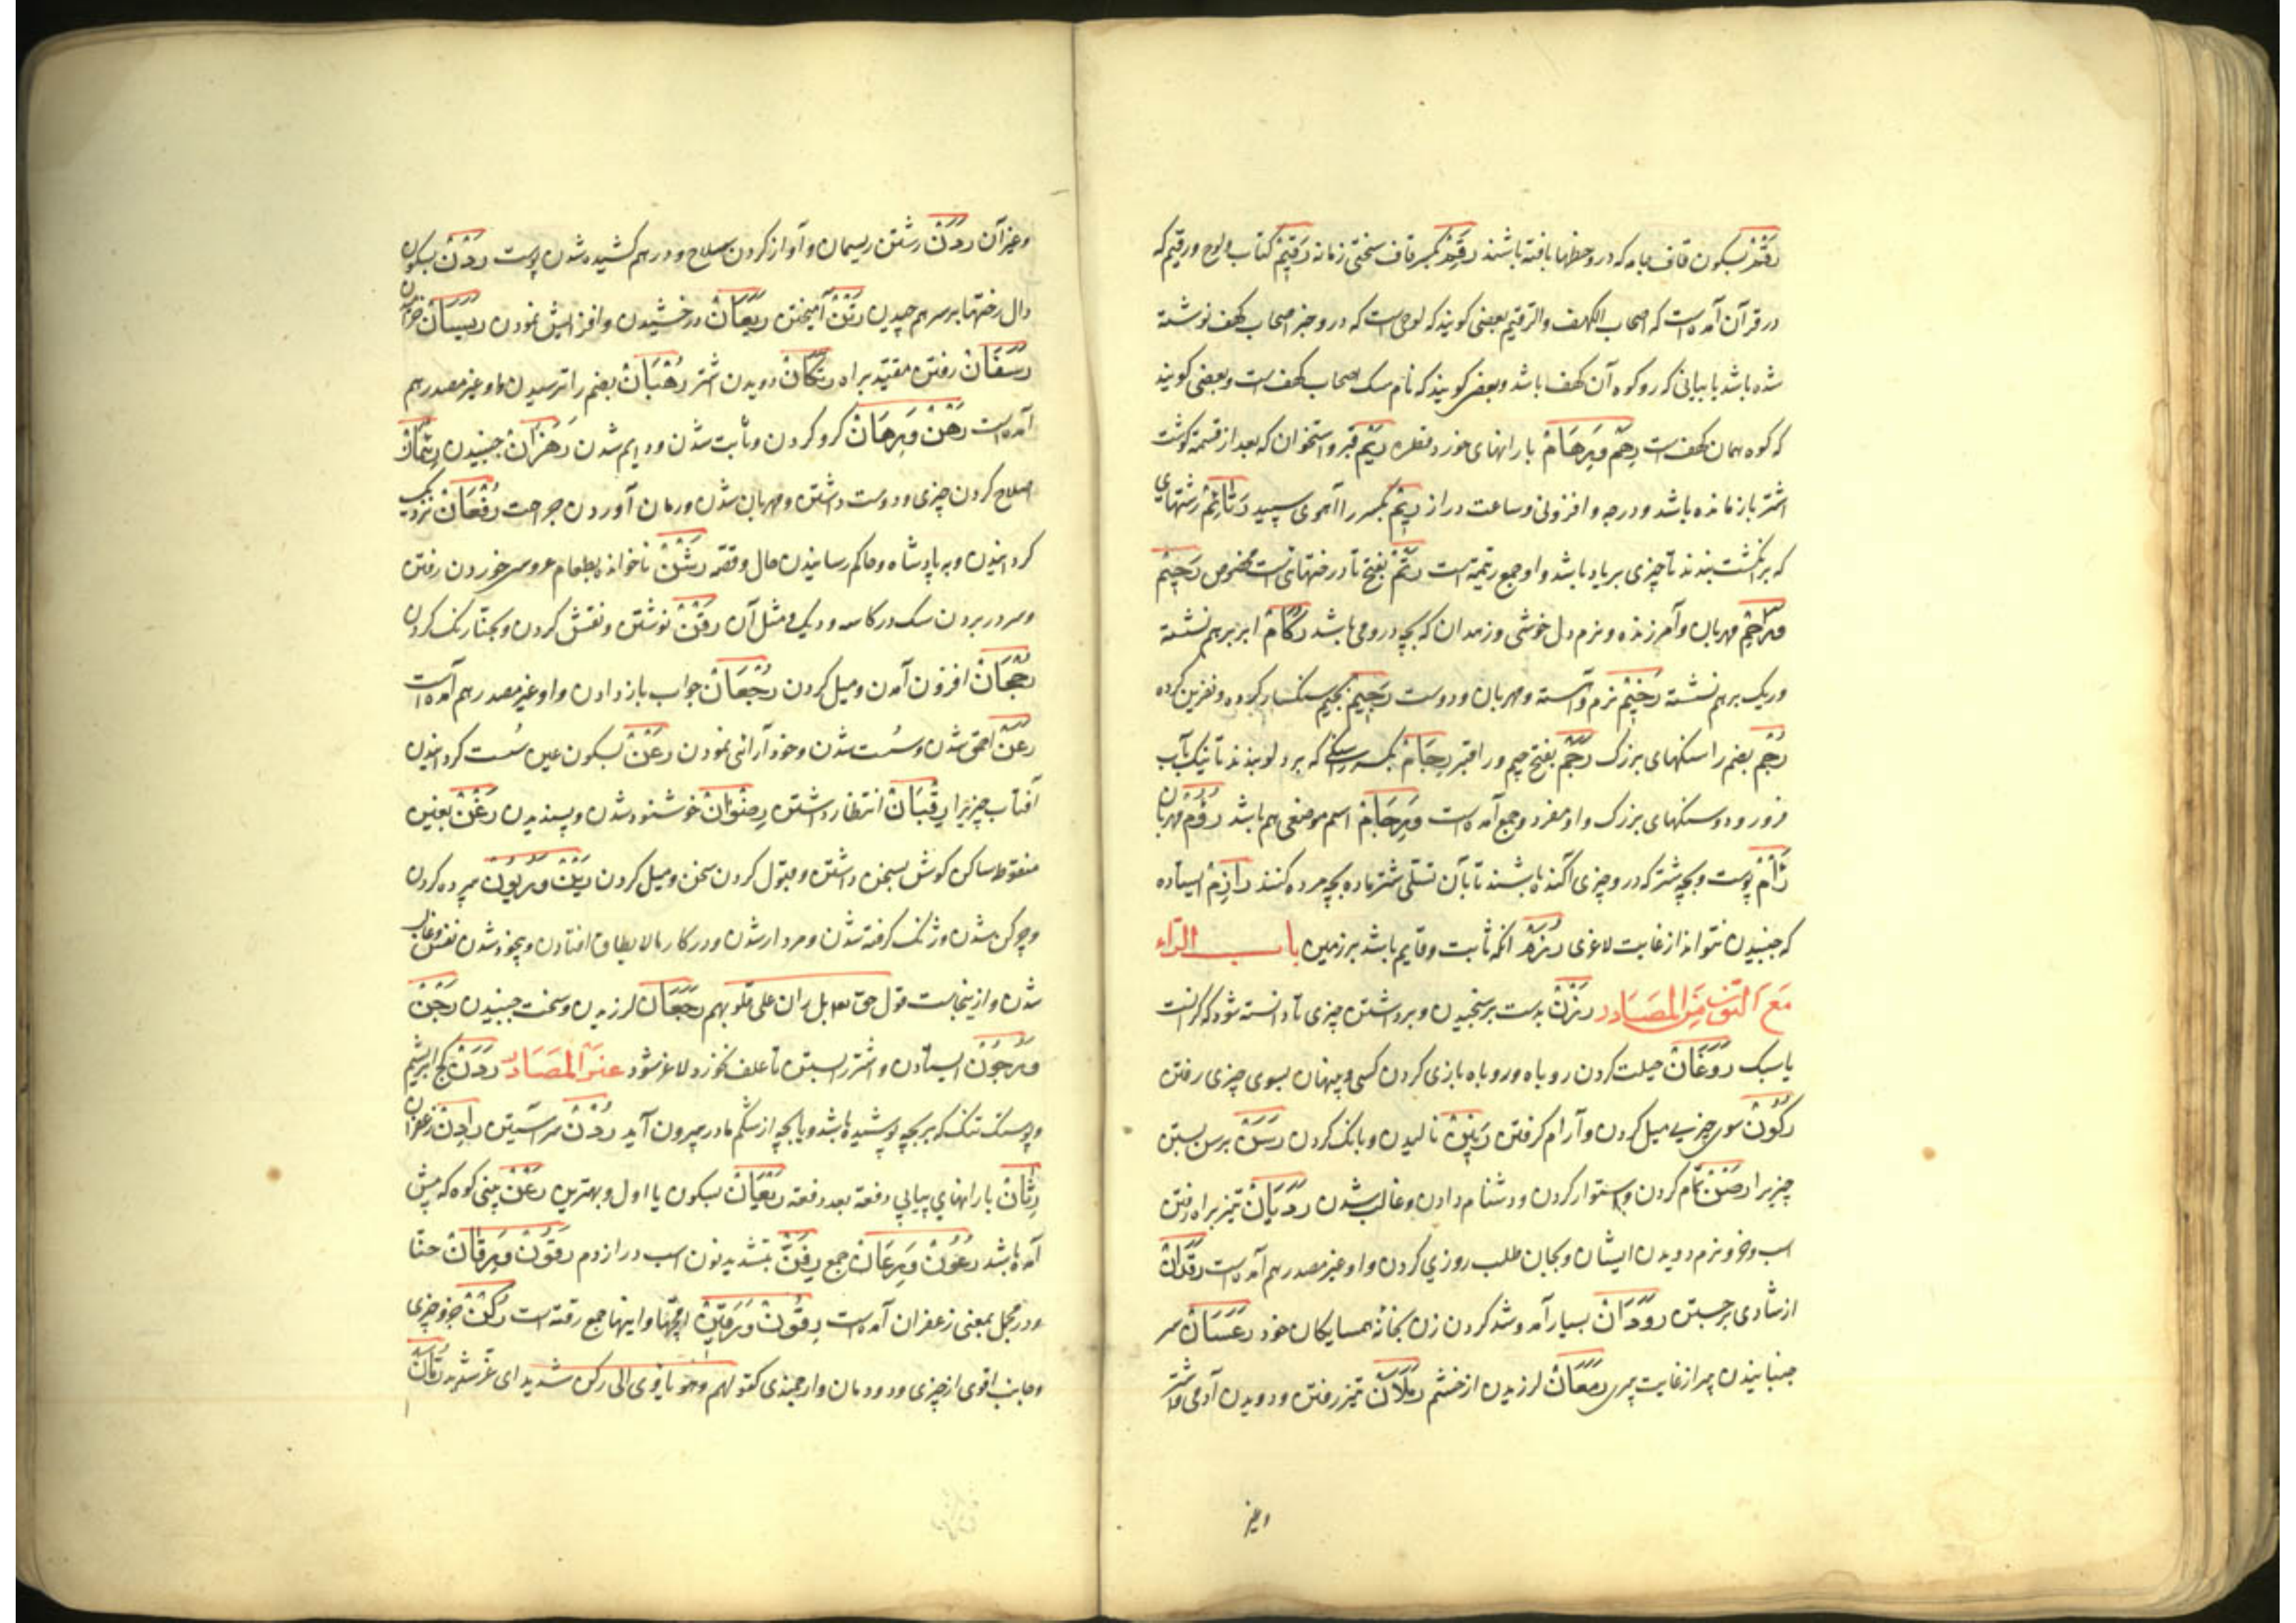 رَقْم بسکون قاف جامه که درو خطها بافته باشند رَقِم بکسر قاف سختی زمانه رَقِیم کتاب و لوح و رقیم که
در قرآن آمده است که اصحاب الکهف والرقیم بعضی کویند که لوحی است که درو خبر اصحاب کهف نوشته
شده باشد یا بیابانی که رو کوه آن کهف باشد و بعضی کویند که نام سک اصحاب کهف است و بعضی کویند
که کوه همان کهف است رِهَم وَ رِهَام بارانهای خورد قطره رَیْم قبر و استخوان که بعد از قسمة کوشت
اشتر باز مانده باشد و درجه و افزونی و ساعت دراز رِیْم بکسر را آهوی سپید رَتَائِم رشتهای
که بر انکشت بندند تا چیزی بر یاد باشد و او جمع رتیمه است رَتَم بفتح تا درختهائی است مخصوص رَحِیْم
مهربان و آمرزنده و نرم دل خوشی و زهدان که بچه درو می باشد رُکَام ابر بر هم نشسته
و ریک بر هم نشسته رَخِیْم نرم و آهسته و مهربان و دوست رَجِیْم بجیم سنکسار کرده و نفرین کرده
رُجْم بضم را سنکهای بزرک رَجَم بفتح جیم و را قبر رِجَام بکسر را سنکی که بر دلو بندند تا نیک بآب
فرو رود و سنکهای بزرک و او مفرد و جمع آمده است وَ رِجَام اسم موضعی هم باشد رَؤُم مهربان
رَأْم پوست بچه شتر که درو چیزی آکنده باشند تا بآن تسلی شتر ماده بچه مرده کنند رَازِم ایستاده
که جنبیدن نتواند از غایت لاغری آنکه ثابت و قایم باشد بر زمین باب الراء
مَعَ النّون مِنَ المَصَادر رَزْن بدست بر سنجیدن و برداشتن چیزی تا دانسته شود که کرانست
یا سبک رَوَغَان حیلت کردن روباه و روباه بازی کردن کسی و پنهان بسوی چیزی رفتن
رُکُوْن سوی چیزی میل کردن و آرام کرفتن رَنِیْن نالیدن و بانک کردن رَسَن برسن بستن
چیزیرا رَصْن تمام کردن و استوار کردن و دشنام دادن و غالب شدن رَدَیَان تیز براه رفتن
اسب و خر و نرم دویدن ایشان و بجان طلب روزی کردن و او غیر مصدر هم آمده است
از شادی برجستن رَوَدَان بسیار آمد و شد کردن زن بخانه همسایکان خود رَعَسَان سر
جنبانیدن پیر از غایت پیری رَمَعَان لرزیدن از خشم رَمَلَان تیز رفتن و دویدن آدمی و اشتر
وغیر
وغیر آن رَدَن رشتن ریسمان و آواز کردن سلاح و در هم کشیده شدن پوست رَدْن بسکون
دال رختها بر سر هم چیدن رَتْن آمیختن رَیَعَان درخشیدن و افزایش نمودن رَیَسَان خرامیدن
رَسَفَان رفتن مقید براه رَتَکَان دویدن اشتر رُهْبَان بضم را ترسیدن و او غیر مصدر هم
آمده است رَهْن وَ رِهَان کرو کردن و ثابت شدن و دایم شدن رَهَزَان جنبیدن رِئْمَان
اصلاح کردن چیزی و دوست داشتن و مهربان شدن و رمان آوردن جراحت رُفْعَان نزدیک
کردانیدن و به پادشاه و حاکم رسانیدن حال و قصه رَشْن ناخوانده بطعام عروسی خوردن رفتن
و سر در بردن سک در کاسه و دیک و مثل آن رَقْن نوشتن و نقش کردن و بحنا رنک کردن
رُجْحَان افزون آمدن و میل کردن رُجْعَان جواب باز دادن و او غیر مصدر هم آمده است
رَعَن احمق شدن و سُست شدن و خود آرائی نمودن رَعْن بسکون عین سُست کردانیدن
آفتاب چیزیرا رِقْبَان انتظار داشتن رِضْوَان خوشنود شدن و پسندیدن رَغْن بغین
منقوطه ساکن کوش بسخن داشتن و قبول کردن سخن و میل کردن رَیْن وَ رُیُوْن پرده کردن
و چرکن شدن و ژنک کرفته شدن و مردار شدن و در کار مالا یطاق افتادن و بیخود شدن نفس و غالب
شدن و ازینجاست قول حق تعالی بل ران علی قلوبهم رَجَعَان لرزیدن و سخت جنبیدن رَجْن
وَ رُجُوْن ایستادن و اشتر را بستن تا علف نخورد و لاغر شود غیرَ المَصَادر رَدَن کج ابریشم
و پوستک تنک که بر بچه پوشیده باشد و با بچه از شکم مادر بیرون آید رُدْن سر آستین رَادِن زعفران
رِثَان بارانهای پیاپی دفعة بعد دفعة رَیْعَان بسکون یا اول و بهترین رَعْن بینی کوه که پیش
آمده باشد رُعُوْن وَ رِعَان جمع رِفَنّ بتشدید نون اسب دراز دم رَقُوْن وَ رِقَان حنا
و در مجمل بمعنی زعفران آمده است رِقُوْن وَ رِقِیْن درمها و اینها جمع رقة است رُکْن جزو چیزی
و جانب اقوی از چیزی و دودمان و ارجمندی کقولهم وهو یاوی الی رکن شدید ای عز شدید رُمَّان